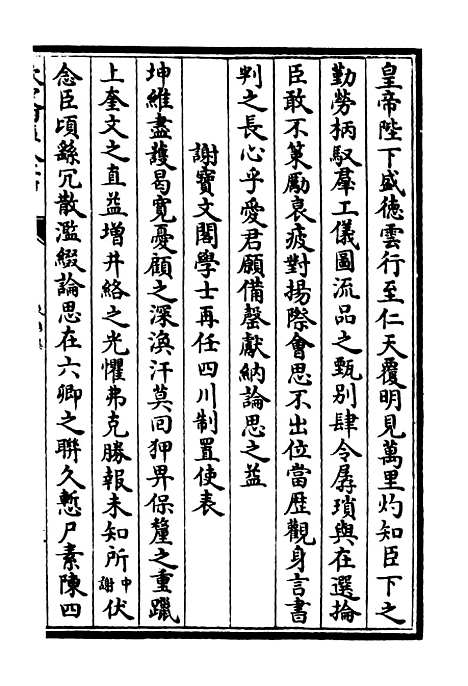 皇帝陛下盛德雲行至仁天覆明見萬里灼知臣下之
勤勞柄馭羣工儀圖流品之甄别肆令孱瑣與在選掄
臣敢不策勵衰疲對揚際會思不出位當歷觀身言書
判之長心乎愛君願備罄獻納論思之益
謝寶文閣學士再任四川制置使表
坤維盡護曷寛憂顧之深渙汗莫回狎畀保釐之重躐
上奎文之直益增井絡之光懼弗克勝報未知所中謝伏
念臣頃繇冗散濫綴論思在六卿之聨久慙尸素陳四